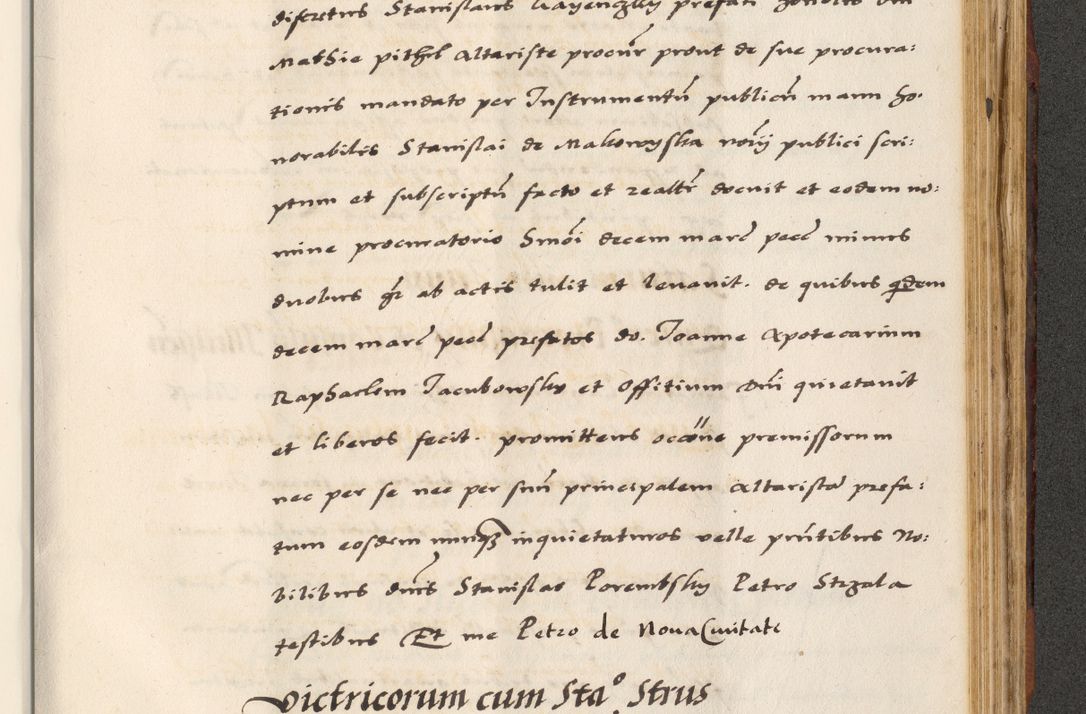 discretus Stanislaus prefati honorabilis dni
Mathie pithel Altariste procur prout de sue procura:
tionis mandato per Instrumentu publicu manu ho:
norabilis Stanislai de Makowyska notarii publici scri:
ptum et subscriptu facto et realiter docuit et eodem no:
mine procuratorio Smoi decem marc pecc minus
duobus gr ab actis tulit et levavit. de quibus quidem
decem marc pecc prefatos do. Joanne Apotecarium
Raphaelem Jacubowsky et Offitium dni quietavit
et liberos fecit. promittens occone premissorum
nec per se nec per suu principalem Altarista prefa:
tum eosdem nunq inquietaturos velle pntibus No:
bilibus dnis Stanislao Porembsky Petro Strzala
testibus Et me Petro de Nova Civitate
Victricorum cum Sta.° Strus